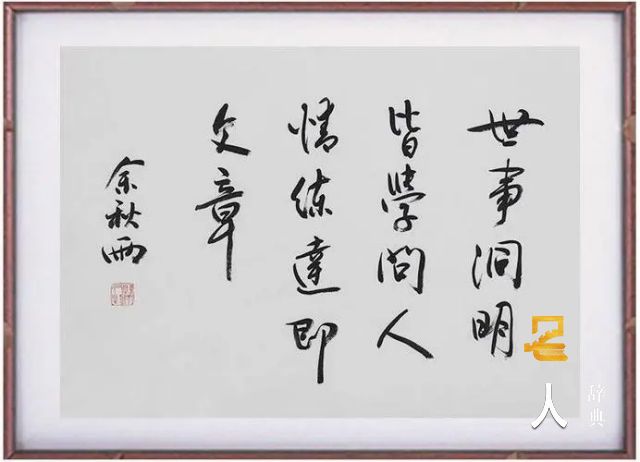 世事洞明
皆學問人
情练達即
文章
余秋雨
名人
辞典